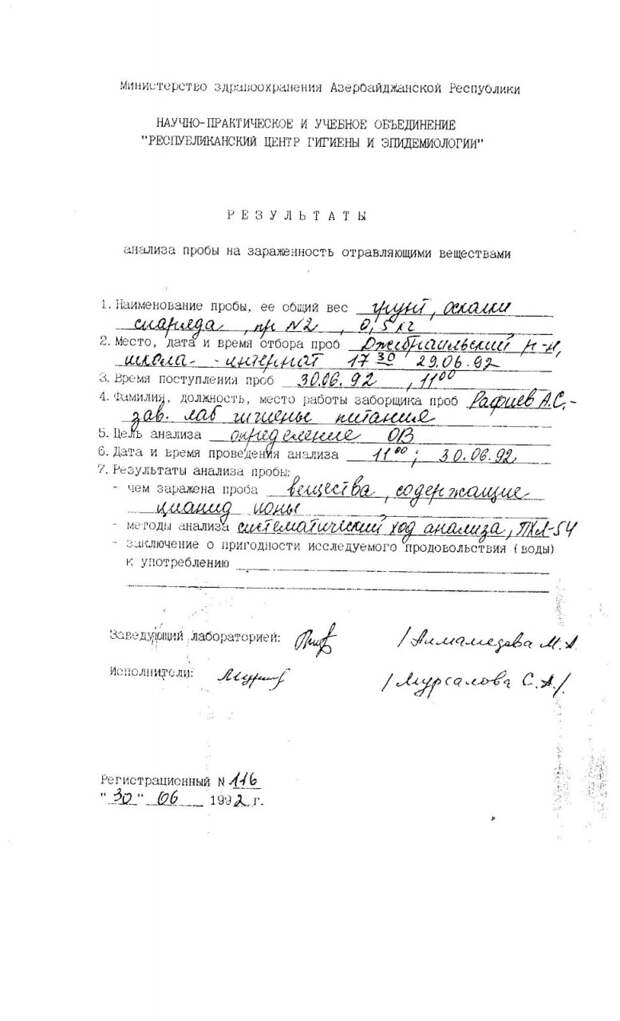 Министерство здравоохранения Азербайджанской Республики
НАУЧНО-ПРАКТИЧЕСКОЕ И УЧЕБНОЕ ОБЪЕДИНЕНИЕ
"РЕСПУБЛИКАНСКИЙ ЦЕНТР ГИГИЕНЫ И ЭПИДЕМИОЛОГИИ"
Р Е З У Л Ь Т А Т Ы
анализа пробы на зараженность отравляющими веществами
1. Наименование пробы, ее общий вес грунт, осколки
снаряда, пр N2, 0,5 кг
2. Место, дата и время отбора проб Джебраильский р-н,
школа-интернат 17 30 29.06.92
3. Время поступления проб 30.06.92, 11 00
4. Фамилия, должность, место работы заборщика проб Рафиев А.С.-
зав. лаб гигиены питания
5. Цель анализа определение ОВ
6. Дата и время проведения анализа 11 00; 30.06.92
7. Результаты анализа пробы:
- чем заражена проба вещества, содержащие
цианид ионы
- методы анализа систематический ход анализа, ПХЛ-54
- заключение о пригодности исследуемого продовольствия (воды)
к употреблению
Заведующий лабораторией: /Алмамедова М.А.
Исполнители: /Мурсалова С.А./.
Регистрационный N 116
"30" 06 1992 г.